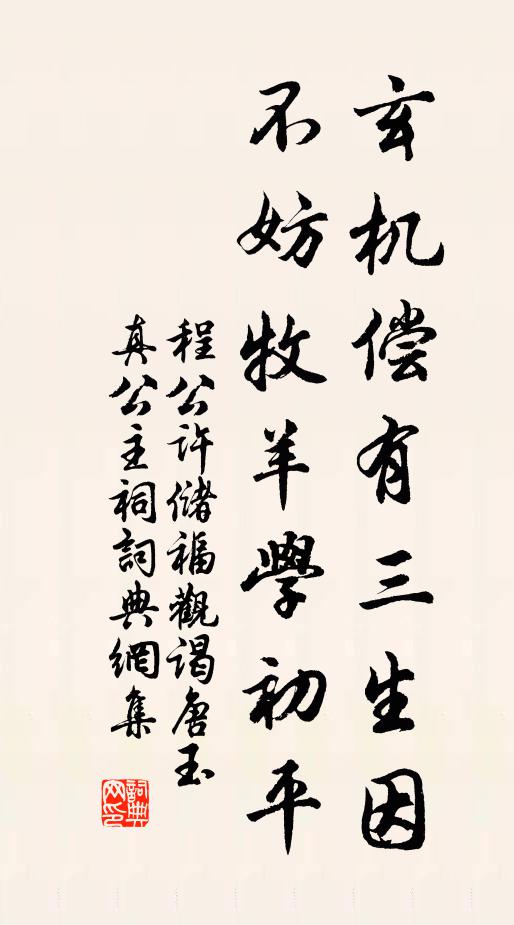 玄机偿有三生因
不妨牧羊學初平
程公许儲福觀谒唐玉
真公主祠詞典網集
詞典网印